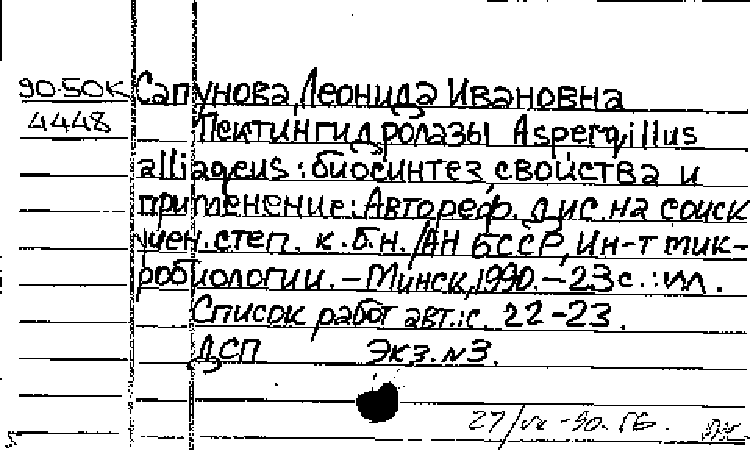 90-50К Сапунова, Леонида Ивановна
4448 Пектингидролазы Aspergillus
alliaceus: биосинтез, свойства и
применение: Автореф. дис. на соиск
учен. степ. к.б.н. / АН БССР, Ин-т мик-
робиологии. – Минск, 1990. – 23 с. : ил.
Список работ авт.: с. 22-23.
ДСП Экз. N3.
27/VI -90. ГБ.